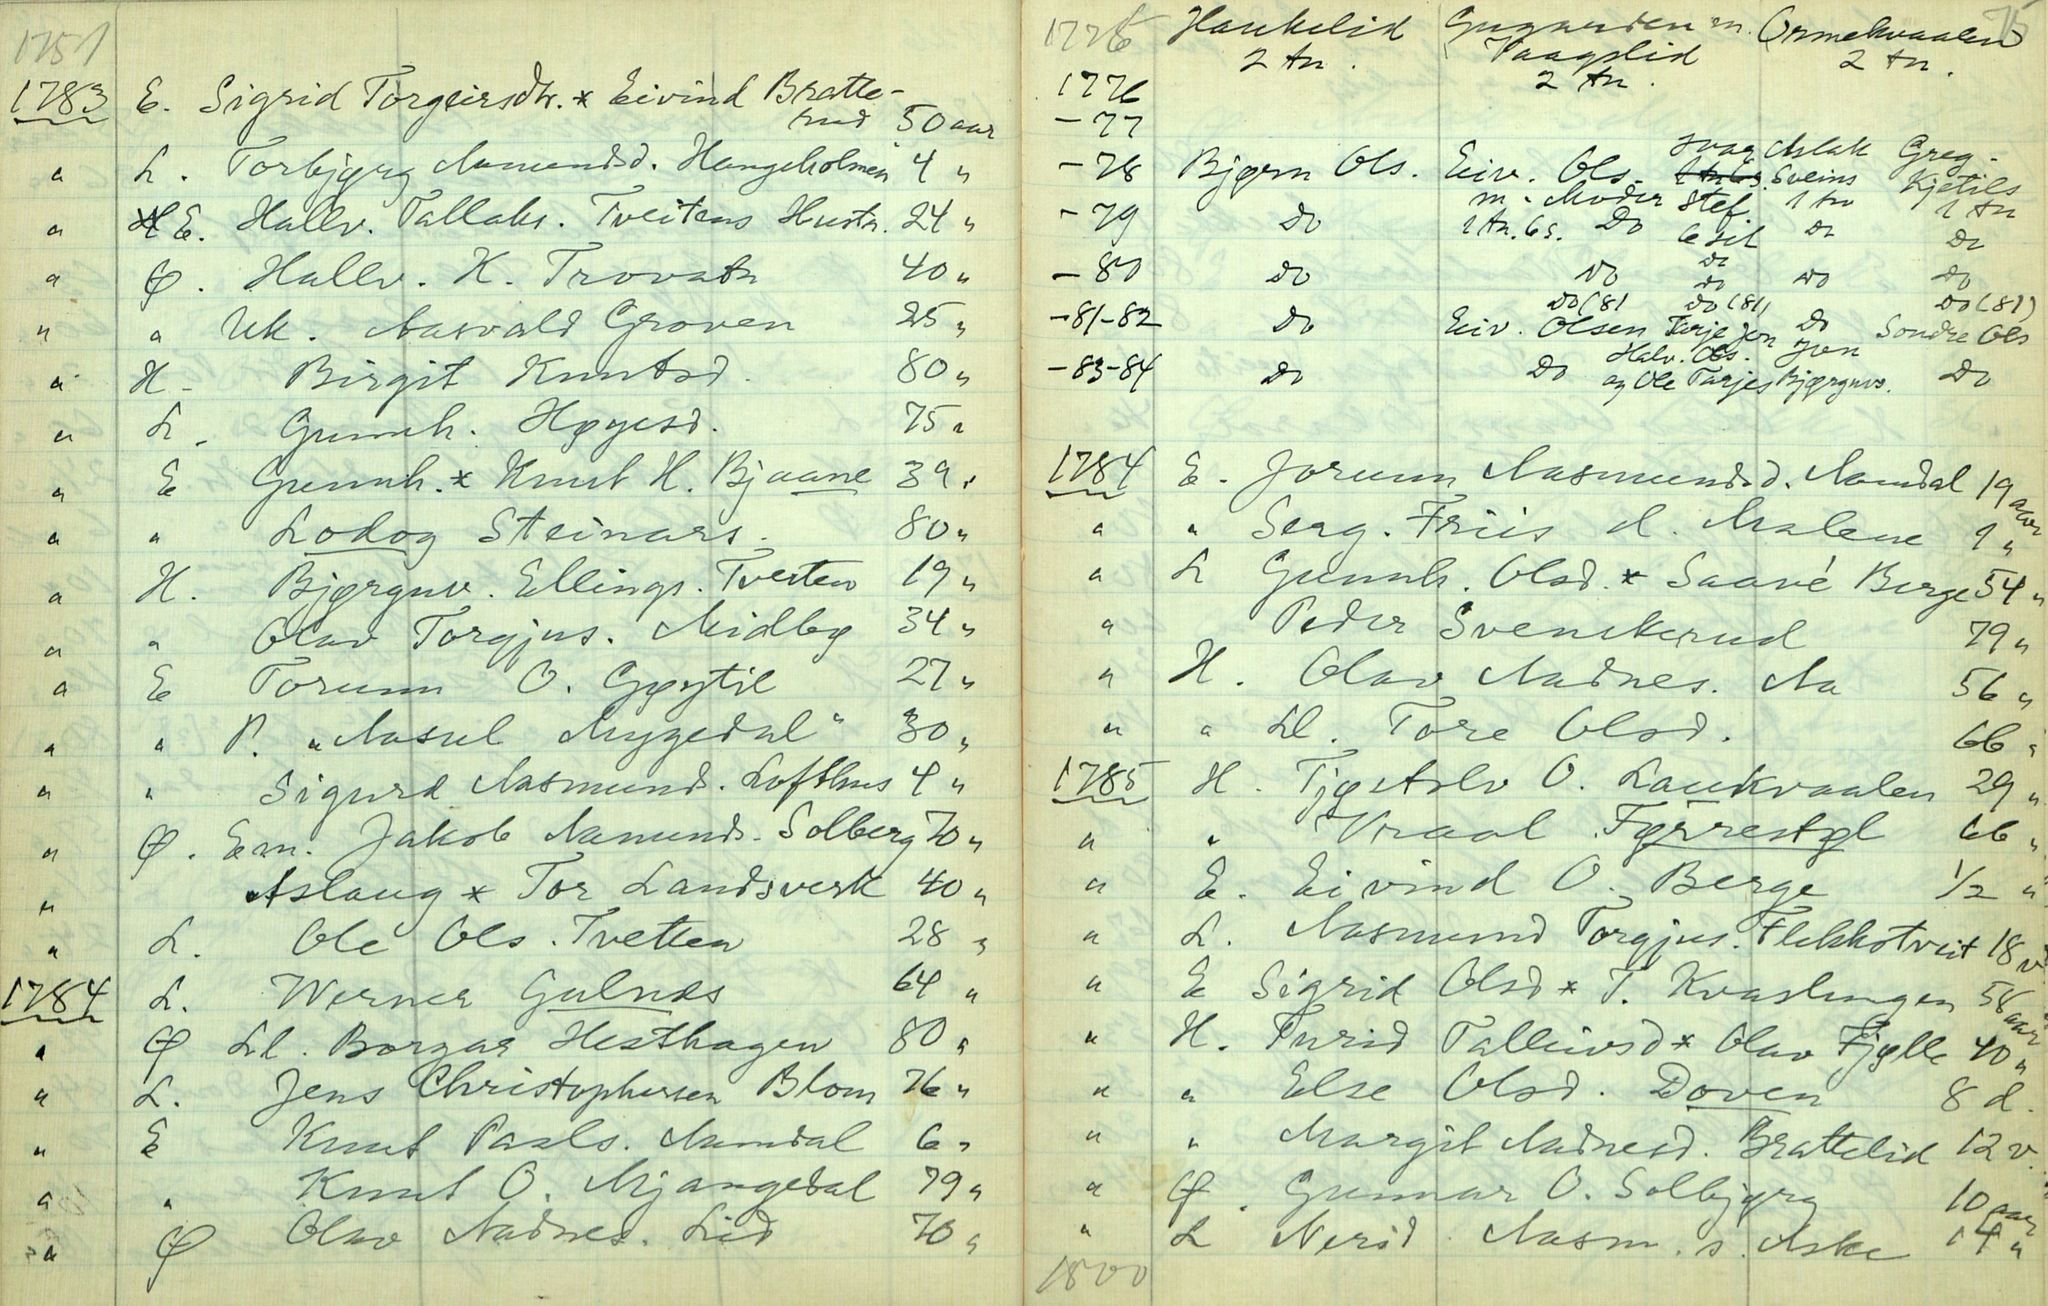 1751
1783 E. Sigrid Torgeirsdtr. * Eivind Bratte-
rud 50 aar
" L. Torbjørg Aamundsd. Haugeholmen 4 "
" E. Hallv. Tallaks. Tveitens Hustr. 24 "
" Ø. Hallv. K. Trovatn 40 "
" " Uk. Aasvald Groven 25 "
" H. Birgit Knutsd. 80 "
" L. Gunnh. Høyesd. 75 "
" E Gunnh. * Knut H. Bjaane 39 "
" " Lodog Steinars. 80 "
" H. Bjørguv. Ellings. Tveiten 19 "
" " Olav Torgjus. Midbø 34 "
" E Torunn O. Gøytil 27 "
" " P. "Aasul Mygedal" 30 "
" " Sigurd Aasmunds. Lofthus 4 "
" Ø. Em. Jakob Aamunds. Solberg 70 "
" Aslaug * Tor Landsverk 40 "
" L. Ole Ols. Tvetten 28 "
1784 L. Werner Gulnes 64 "
" Ø Ll. Borgar Hesthagen 80 "
" L. Jens Christophersen Blom 76 "
" E Knut Paals. Aamdal 6 "
" " Knut O. Mjaugedal 79 "
" Ø Olav Aadnes. Lid 70 "
75
1776 Haukelid Gugarden m. Ormekvaalen
2 tn. Vaagslid 2 tn.
2 tn.
1776
- 77
- 78 Bjørn Ols. Eiv. Ols. Svag Aslak Greg.
m. Moder Stef. Sveins 1 tn Kjetils 1 tn
- 79 Do 1 tn. 6 s. Do 6 set Do Do
- 80 Do Do Do Do Do
Do (81) Do (81) Do (81)
- 81-82 Do Eiv. Olsen Terje Jon Do Sondre Ols
- 83-84 Do Do Halv. Ols. Jon Do
og Ole Tarjes Bjørguvs.
1784 E. Jorunn Aasmundsd. Aamdal 19 aar
" " Serg. Friis d. Malene 9 "
" L Gunnh. Olsd. * Saavé Berge 54 "
" Peder Svenskerud 79 "
" H. Olav Aadnes. Aa 56 "
" " Ll. Tore Olsd. 66 "
1785 H. Tjøstolv O. Laukvaalen 29 "
" " Vraal Førrestøl 66 "
" E. Eivind O. Berge 1/2 "
" L. Aasmund Torgjus. Flekkstveit 18 v
" E Sigrid Olsd * T. Kvaslungen 58 aar
" H. Turid Talleivsd * Olav Fjølle 40 "
" " Else Olsd. Doven 8 d.
" " Margit Aadnesd. Brattelid 12 v.
" Ø. Gunnar O. Solbjørg 10 aar
" L Nerid Aasm. s. Aske 14 "
1800